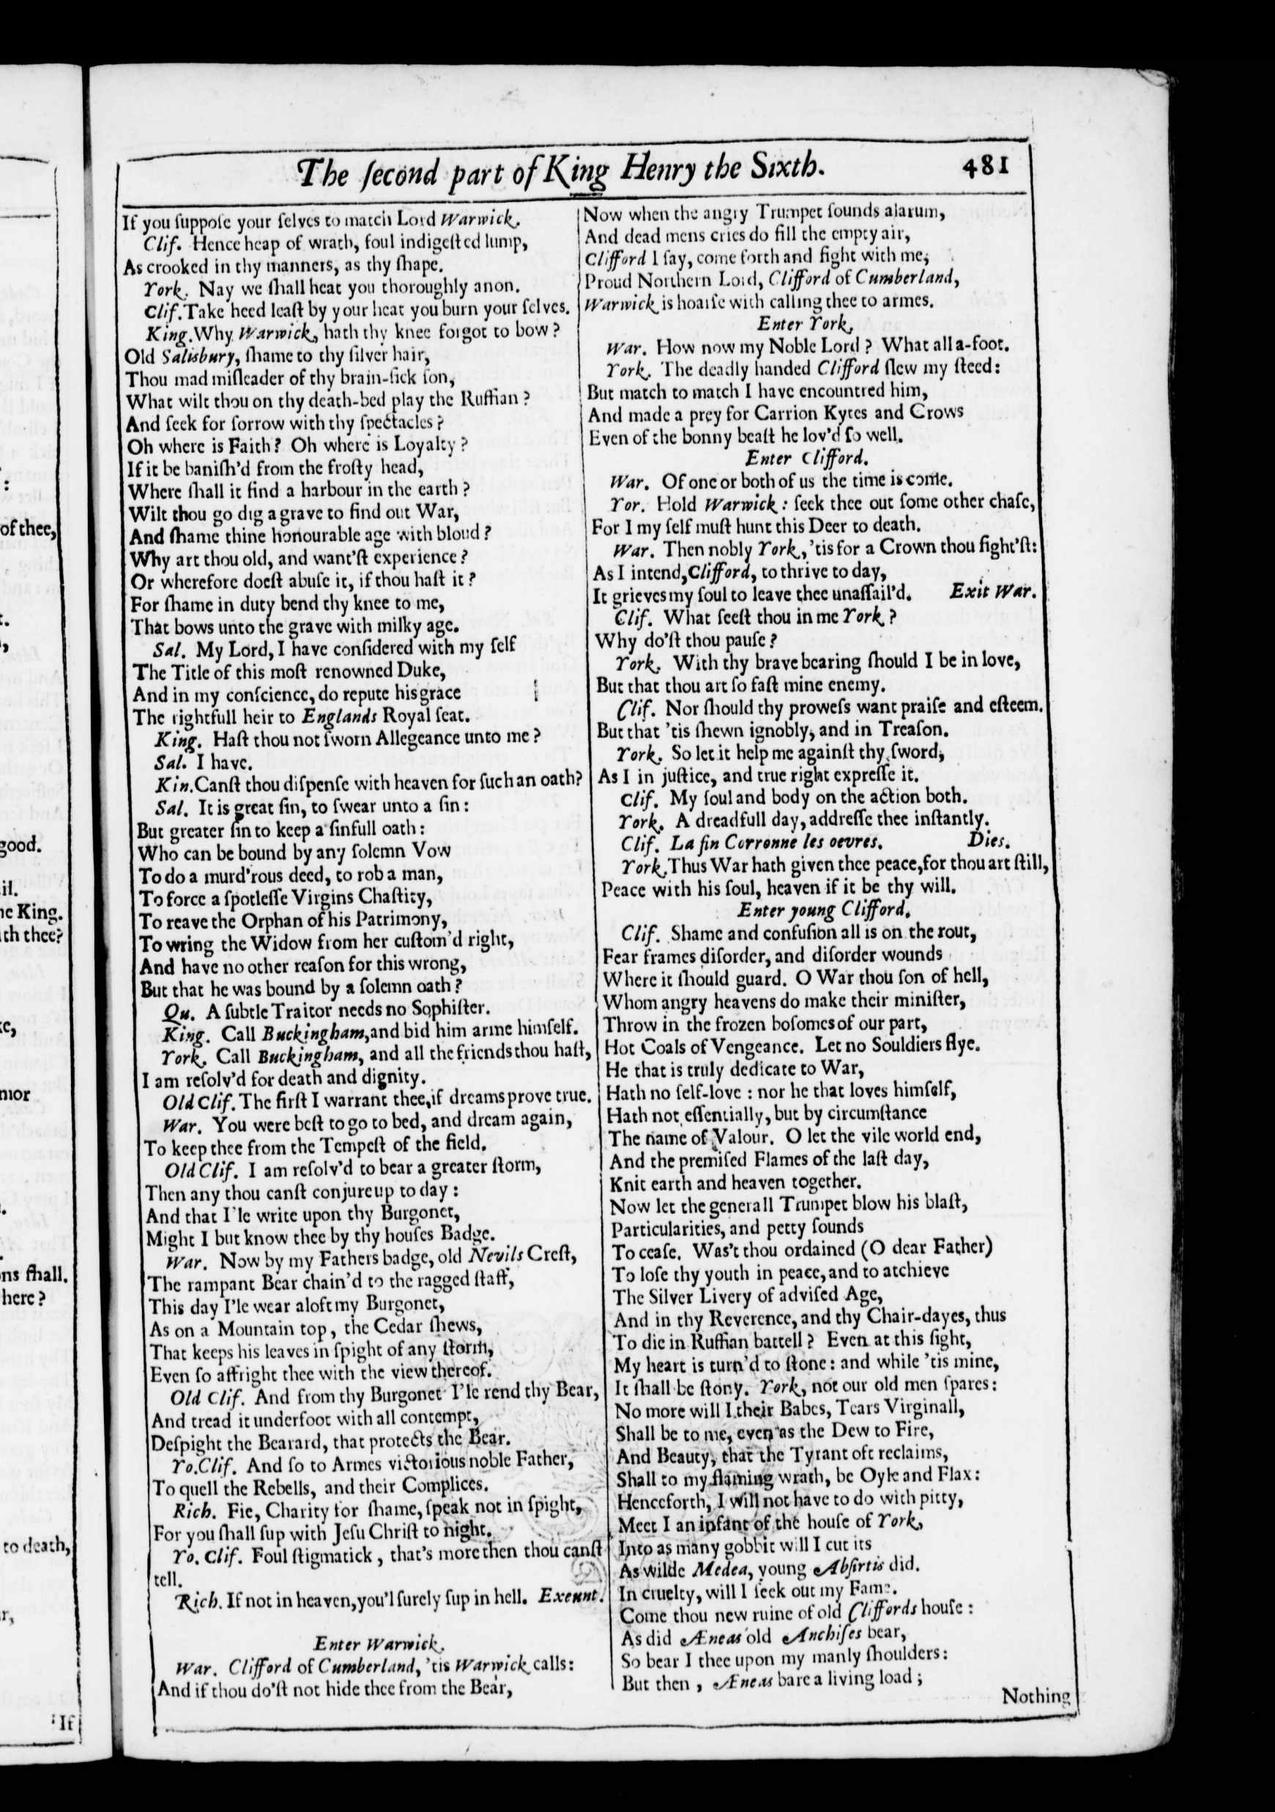 of thee,
good.
he King.
ith thee?
ons ſhall.
here?
to death,
If
The ſecond part of King Henry the Sixth. 481
If you ſuppoſe your ſelves to match Lord Warwick.
Clif. Hence heap of wrath, foul indigeſted lump,
As crooked in thy manners, as thy ſhape.
York. Nay we ſhall heat you thoroughly anon.
Clif. Take heed leaſt by your heat you burn your ſelves.
King. Why Warwick, hath thy knee forgot to bow?
Old Salisbury, ſhame to thy ſilver hair,
Thou mad miſleader of thy brain-ſick ſon,
What wilt thou on thy death-bed play the Ruffian?
And ſeek for ſorrow with thy ſpectacles?
Oh where is Faith? Oh where is Loyalty?
If it be baniſh'd from the froſty head,
Where ſhall it find a harbour in the earth?
Wilt thou go dig a grave to find out War,
And ſhame thine honourable age with bloud?
Why art thou old, and want'ſt experience?
Or wherefore doeſt abuſe it, if thou haſt it?
For ſhame in duty bend thy knee to me,
That bows unto the grave with milky age.
Sal. My Lord, I have conſidered with my ſelf
The Title of this moſt renowned Duke,
And in my conſcience, do repute his grace
The rightfull heir to Englands Royal ſeat.
King. Haſt thou not ſworn Allegeance unto me?
Sal. I have.
Kin. Canſt thou diſpenſe with heaven for ſuch an oath?
Sal. It is great ſin, to ſwear unto a ſin:
But greater ſin to keep a ſinfull oath:
Who can be bound by any ſolemn Vow
To do a murd'rous deed, to rob a man,
To force a ſpotleſſe Virgins Chaſtity,
To reave the Orphan of his Patrimony,
To wring the Widow from her cuſtom'd right,
And have no other reaſon for this wrong,
But that he was bound by a ſolemn oath?
Qu. A ſubtle Traitor needs no Sophiſter.
King. Call Buckingham, and bid him arme himſelf.
York. Call Buckingham, and all the friends thou haſt,
I am reſolv'd for death and dignity.
Old Clif. The firſt I warrant thee, if dreams prove true.
War. You were beſt to go to bed, and dream again,
To keep thee from the Tempeſt of the field.
Old Clif. I am reſolv'd to bear a greater ſtorm,
Then any thou canſt conjure up to day:
And that I'le write upon thy Burgonet,
Might I but know thee by thy houſes Badge.
War. Now by my Fathers badge, old Nevils Creſt,
The rampant Bear chain'd to the ragged ſtaff,
This day I'le wear aloft my Burgonet,
As on a Mountain top, the Cedar ſhews,
That keeps his leaves in ſpight of any ſtorm,
Even ſo affright thee with the view thereof.
Old Clif. And from thy Burgonet I'le rend thy Bear,
And tread it underfoot with all contempt,
Deſpight the Bearard, that protects the Bear.
Yo. Clif. And ſo to Armes victorious noble Father,
To quell the Rebells, and their Complices.
Rich. Fie, Charity for ſhame, ſpeak not in ſpight,
For you ſhall ſup with Jeſu Chriſt to night.
Yo. Clif. Foul ſtigmatick, that's more then thou canſt
tell.
Rich. If not in heaven, you'l ſurely ſup in hell. Exeunt.
Enter Warwick.
War. Clifford of Cumberland, 'tis Warwick calls:
And if thou do'ſt not hide thee from the Bear,
Now when the angry Trumpet ſounds alarum,
And dead mens cries do fill the empty air,
Clifford I ſay, come forth and fight with me,
Proud Northern Lord, Clifford of Cumberland,
Warwick is hoarſe with calling thee to armes.
Enter York.
War. How now my Noble Lord? What all a-foot.
York. The deadly handed Clifford ſlew my ſteed:
But match to match I have encountred him,
And made a prey for Carrion Kytes and Crows
Even of the bonny beaſt he lov'd ſo well.
Enter Clifford.
War. Of one or both of us the time is come.
Yor. Hold Warwick: ſeek thee out ſome other chaſe,
For I my ſelf muſt hunt this Deer to death.
War. Then nobly York, 'tis for a Crown thou fight'ſt:
As I intend, Clifford, to thrive to day,
It grieves my ſoul to leave thee unaſſail'd. Exit War.
Clif. What ſeeſt thou in me York?
Why do'ſt thou pauſe?
York. With thy brave bearing ſhould I be in love,
But that thou art ſo faſt mine enemy.
Clif. Nor ſhould thy proweſs want praiſe and eſteem.
But that 'tis ſhewn ignobly, and in Treaſon.
York. So let it help me againſt thy ſword,
As I in juſtice, and true right expreſſe it.
Clif. My ſoul and body on the action both.
York. A dreadfull day, addreſſe thee inſtantly.
Clif. La fin Corronne les oevres. Dies.
York. Thus War hath given thee peace, for thou art ſtill,
Peace with his ſoul, heaven if it be thy will.
Enter young Clifford.
Clif. Shame and confuſion all is on the rout,
Fear frames diſorder, and diſorder wounds
Where it ſhould guard. O War thou ſon of hell,
Whom angry heavens do make their miniſter,
Throw in the frozen boſomes of our part,
Hot Coals of Vengeance. Let no Souldiers flye.
He that is truly dedicate to War,
Hath no ſelf-love: nor he that loves himſelf,
Hath not eſſentially, but by circumſtance
The name of Valour. O let the vile world end,
And the premiſed Flames of the laſt day,
Knit earth and heaven together.
Now let the generall Trumpet blow his blaſt,
Particularities, and petty ſounds
To ceaſe. Was't thou ordained (O dear Father)
To loſe thy youth in peace, and to atchieve
The Silver Livery of adviſed Age,
And in thy Reverence, and thy Chair-dayes, thus
To die in Ruffian battell? Even at this ſight,
My heart is turn'd to ſtone: and while 'tis mine,
It ſhall be ſtony. York, not our old men ſpares:
No more will I their Babes, Tears Virginall,
Shall be to me, even as the Dew to Fire,
And Beauty, that the Tyrant oft reclaims,
Shall to my flaming wrath, be Oyle and Flax:
Henceforth, I will not have to do with pitty,
Meet I an infant of the houſe of York,
Into as many gobbit will I cut its
As wilde Medea, young Abſirtis did.
In cruelty, will I ſeek out my Fame.
Come thou new ruine of old Cliffords houſe:
As did Æneas old Anchiſes bear,
So bear I thee upon my manly ſhoulders:
But then, Æneas bare a living load;
Nothing